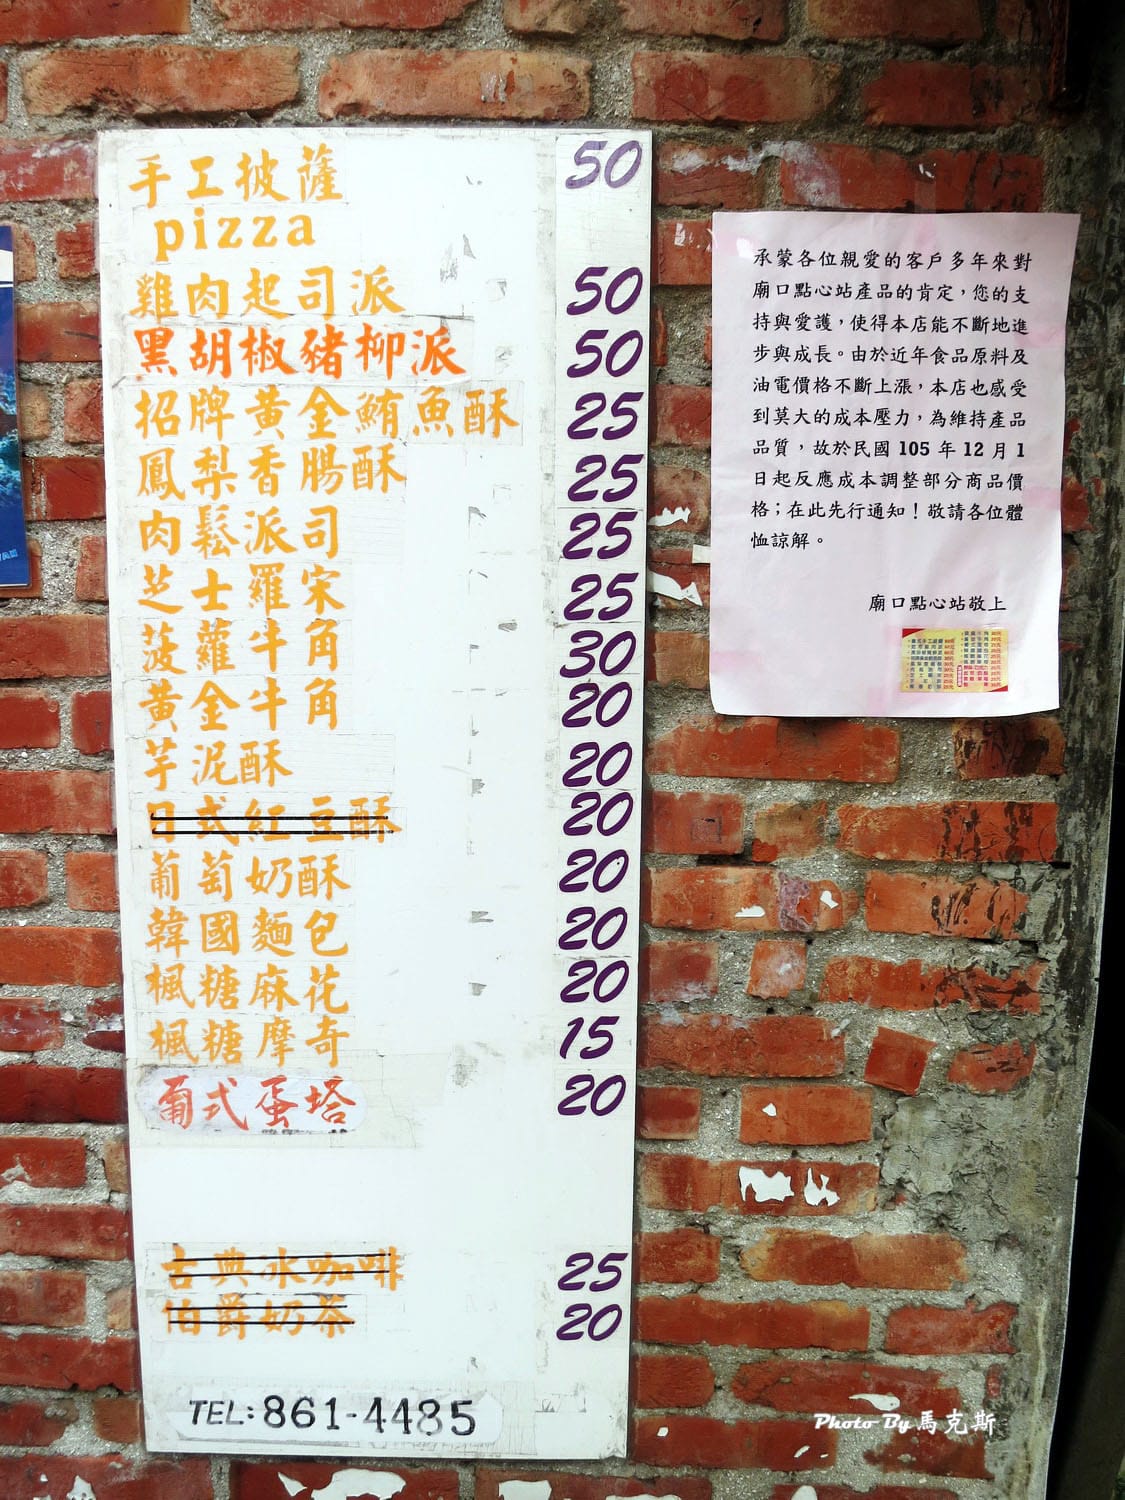 手工披薩 50
pizza
雞肉起司派 50
黑胡椒豬柳派 50
招牌黃金鮪魚酥 25
鳳梨香腸酥 25
肉鬆派司 25
芝士羅宋 25
菠蘿牛角 30
黃金牛角 20
芋泥酥 20
日式紅豆酥 20
葡萄奶酥 20
韓國麵包 20
楓糖麻花 20
楓糖摩奇 15
葡式蛋塔 20
古典冰咖啡 25
伯爵奶茶 20
TEL:861-4485
承蒙各位親愛的客戶多年來對
廟口點心站產品的肯定，您的支
持與愛護，使得本店能不斷地進
步與成長。由於近年食品原料及
油電價格不斷上漲，本店也感受
到莫大的成本壓力，為維持產品
品質，故於民國 105 年 12 月 1
日起反應成本調整部分商品價
格；在此先行通知！敬請各位體
恤諒解。
廟口點心站敬上
Photo By 馬克斯